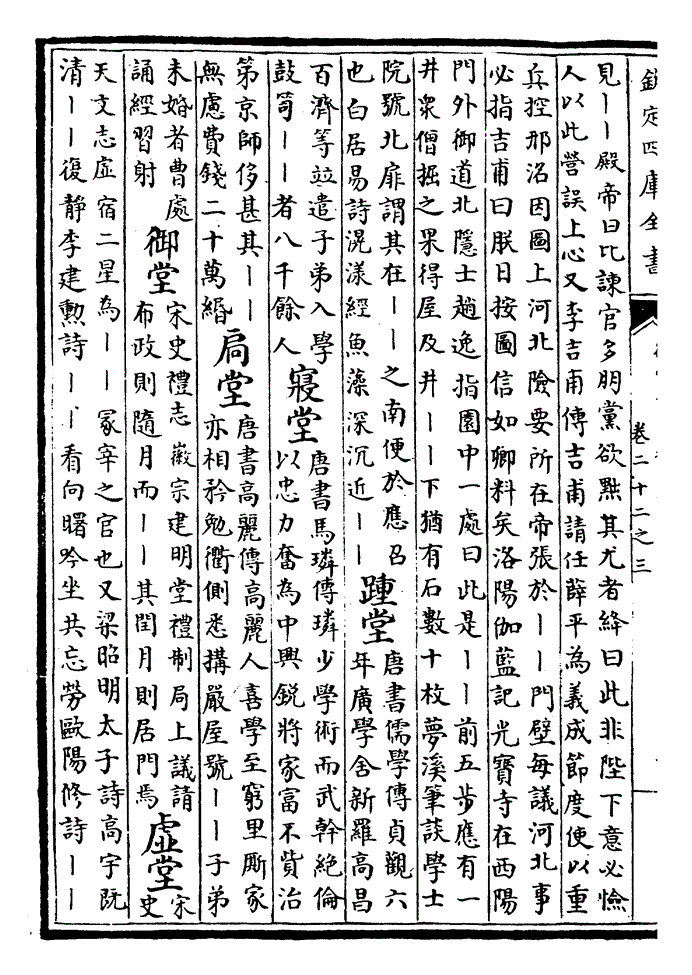 欽定四庫全書
卷二十二之三
見丨丨殿帝曰比諫官多朋黨欲黜其尤者絳曰此非陛下意必憸
人以此營誤上心又李吉甫傳吉甫請任薛平為義成節度使以重
兵控邢洺因圖上河北險要所在帝張於丨丨門壁每議河北事
必指吉甫曰朕日按圖信如卿料矣洛陽伽藍記光寶寺在西陽
門外御道北隱士趙逸指園中一處曰此是丨丨前五步應有一
井衆僧掘之果得屋及井丨丨下猶有石數十枚夢溪筆談學士
院號北扉謂其在丨丨之南便於應召
也白居易詩滉漾經魚藻深沉近丨丨
踵堂
唐書儒學傳貞觀六
年廣學舍新羅高昌
百濟等竝遣子弟入學
鼓笥丨丨者八千餘人
寢堂
唐書馬璘傳璘少學術而武幹絕倫
以忠力奮為中興銳將家富不貲治
第京師侈甚其丨丨
無慮費錢二十萬緡
扃堂
唐書高麗傳高麗人喜學至窮里厮家
亦相矜勉衢側悉搆嚴屋號丨丨子弟
未婚者曹處
誦經習射
御堂
宋史禮志徽宗建明堂禮制局上議請
布政則隨月而丨丨其閏月則居門焉
虛堂
宋
史
天文志虛宿二星為丨丨冢宰之官也又梁昭明太子詩高宇既
清丨丨復靜李建勲詩丨丨看向曙吟坐共忘勞歐陽修詩丨丨